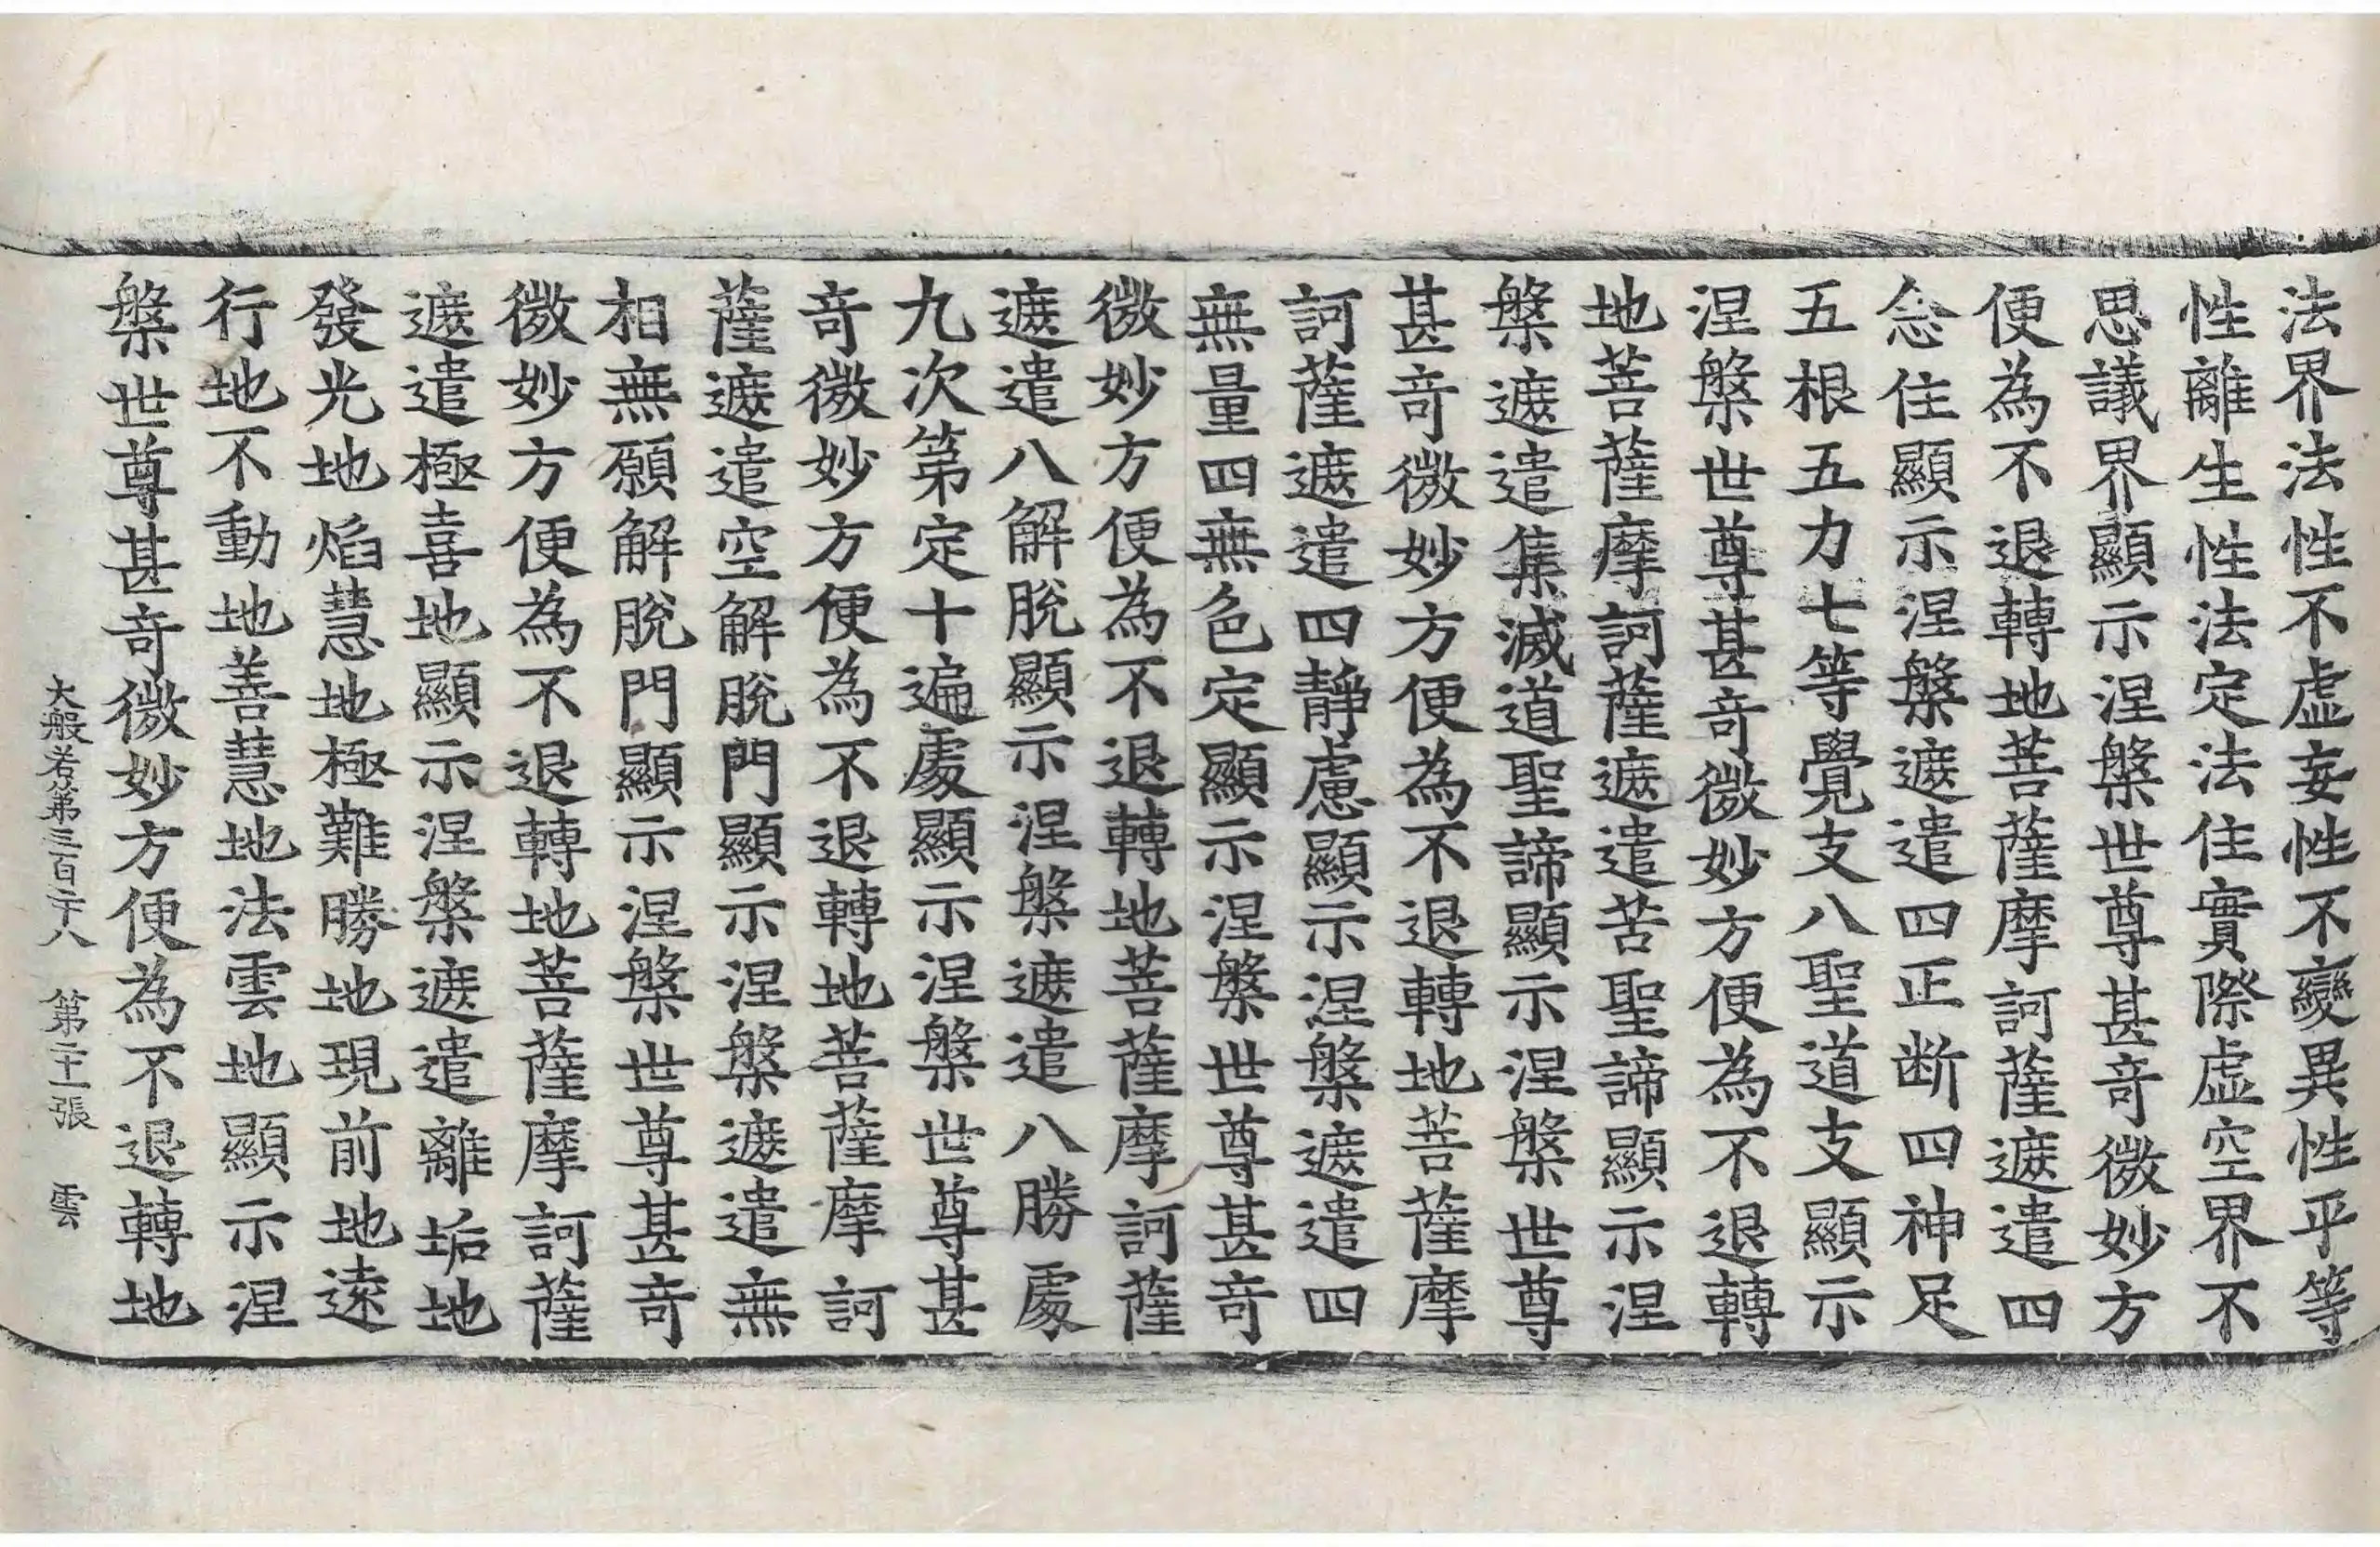 法界法性不虛妄性不變異性平等
性離生性法定法住實際虛空界不
思議界顯示涅槃世尊甚奇微妙方
便為不退轉地菩薩摩訶薩遮遣四
念住顯示涅槃遮遣四正断四神足
五根五力七等覺支八聖道支顯示
涅槃世尊甚奇微妙方便為不退轉
地菩薩摩訶薩遮遣苦聖諦顯示涅
槃遮遣集滅道聖諦顯示涅槃世尊
甚奇微妙方便為不退轉地菩薩摩
訶薩遮遣四靜慮顯示涅槃遮遣四
無量四無色定顯示涅槃世尊甚奇
微妙方便為不退轉地菩薩摩訶薩
遮遣八解脫顯示涅槃遮遣八勝處
九次第定十遍處顯示涅槃世尊甚
奇微妙方便為不退轉地菩薩摩訶
薩遮遣空解脫門顯示涅槃遮遣無
相無願解脫門顯示涅槃世尊甚奇
微妙方便為不退轉地菩薩摩訶薩
遮遣極喜地顯示涅槃遮遣離垢地
發光地焰慧地極難勝地現前地遠
行地不動地善慧地法雲地顯示涅
槃世尊甚奇微妙方便為不退轉地
大般若第三百二十八 第二十一張 雲